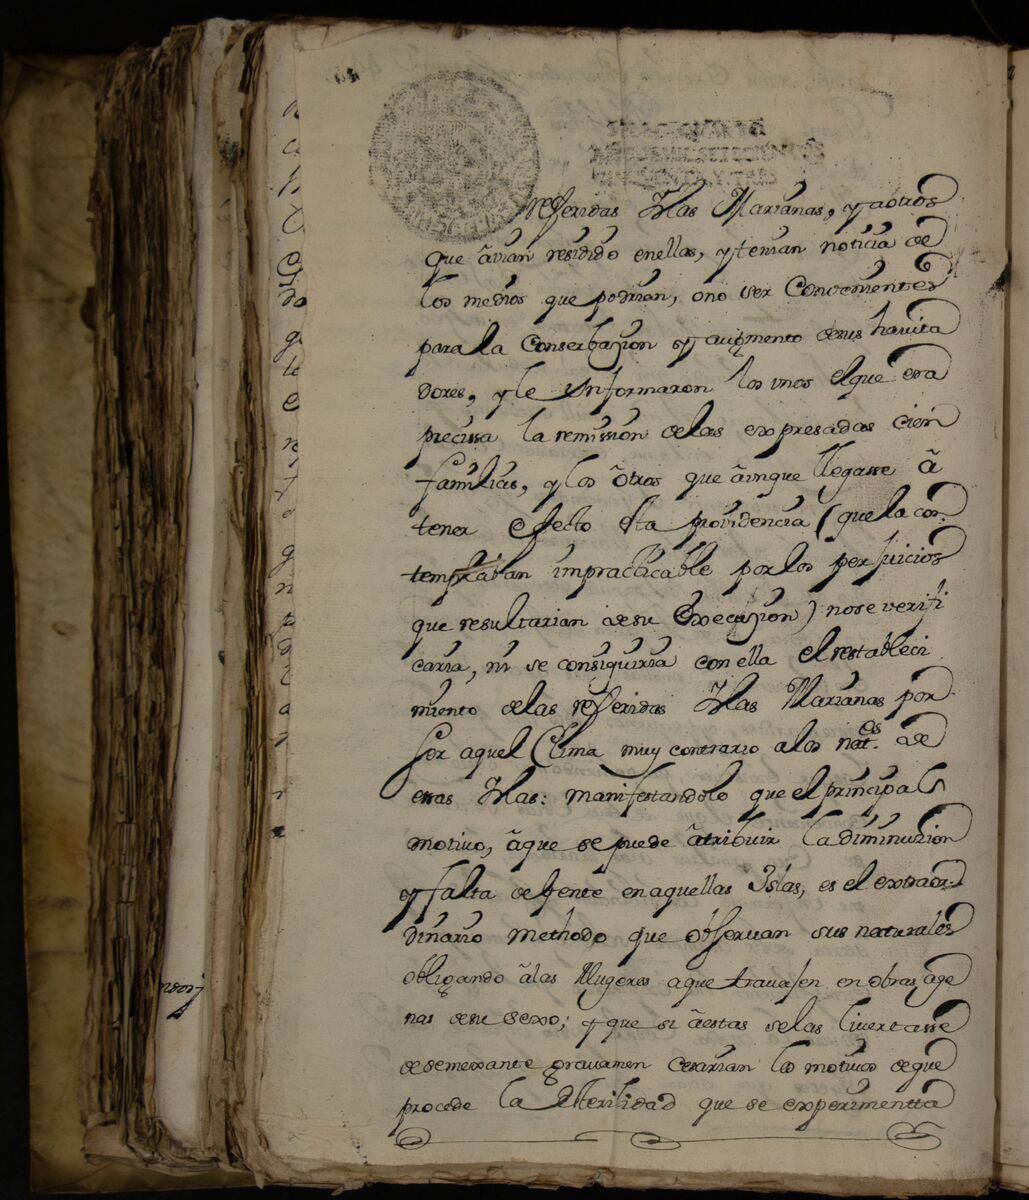 referidas Yslas Marianas, y a otros
que avian residido enellas, y tenian noticia de
los medios que podrian, ono ser Convenientes
para la Conserbazion y augmento desus havita
dores, y le Ynformaron los unos elque era
precissa la remission delas expresadas cien
familias, y los ôtros que âunque llegasse â
tener efecto esta providencia (que la con
templaban impracticable por los perjuicios
que resultarian desu Execuzion) nose verifi
caria, ni se consiguiria con ella el restableci
miento delas referidas Yslas Marianas por
ser aquel Clima muy contrario alos nat.es de
essas Yslas: manifestandolo que el principal
motivo, âque se puede âtribuir la diminuzion
y falta de jente en aquellas Yslas, es el extraor
dinario methodo que observan sus naturales
obligando âlas Mugeres aque travajen en obras age
nas desu sexo; y que si âestas selas livertasse
de semexante gravamen cesarian los motivos deque
procede la esterilidad que se experimentta